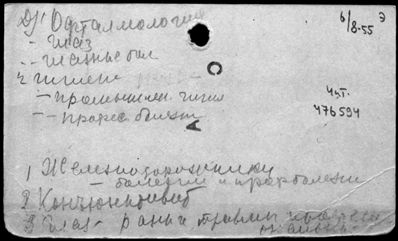 Д' Офталмология
- глаз
-- глазные бол
ч гигиене
- промышлен. гигие
-- профес. болезн
6/8-55 Э
Чит.
476594
С
А
1 Железнодорожники
- болезни и профболезни
2 Конъюнктивит
3 Глаз - раны и травмы